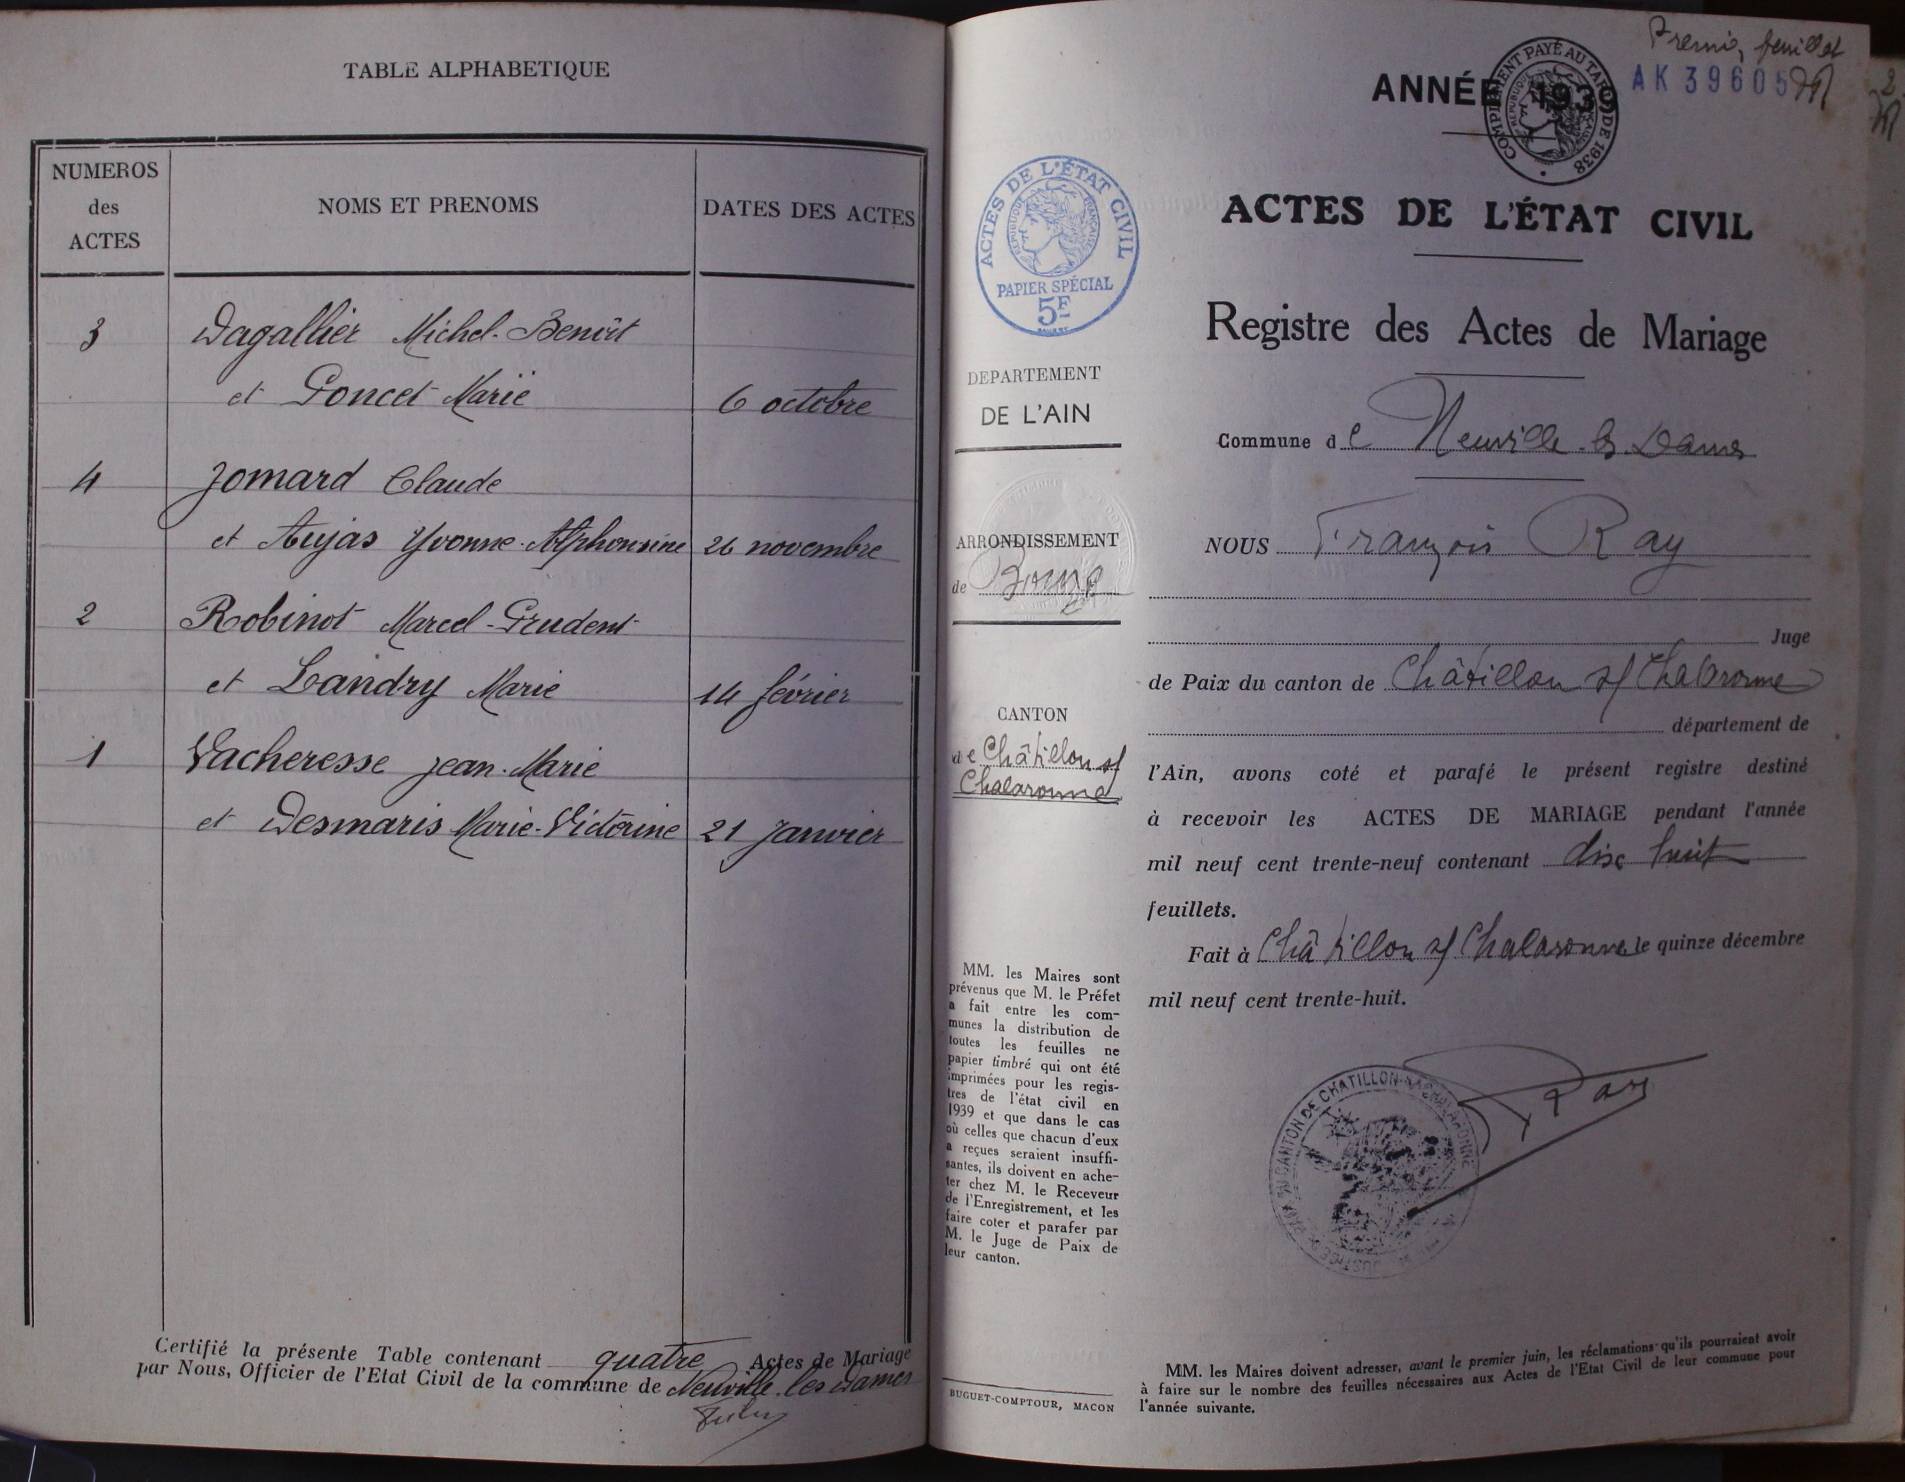 TABLE ALPHABETIQUE
NUMEROS
des
ACTES
NOMS ET PRENOMS
DATES DES ACTES
3
Dagallier Michel-Benoît
et Poncet Marie
6 octobre
4
Jomard Claude
et Aujas Yvonne-Alphonsine
26 novembre
2
Robinot Marcel-Prudent
et Landry Marie
14 février
1
Vacheresse Jean-Marie
et Desmaris Marie-Victorine
21 Janvier
Certifié la présente Table contenant quatre Actes de Mariage
par Nous, Officier de l'Etat Civil de la commune de Neuville les Dames
Premier feuillet
AK 39605
2
COMPLEMENT PAYÉ AU TARIF DE 1938
ANNÉE 1939
ACTES DE L'ÉTAT CIVIL
RÉPUBLIQUE FRANÇAISE
PAPIER SPÉCIAL
5F
DEPARTEMENT
DE L'AIN
ARRONDISSEMENT
de Bourg
CANTON
de Châtillon s/
Chalaronne
MM. les Maires sont
prévenus que M. le Préfet
a fait entre les com-
munes la distribution de
toutes les feuilles ne
papier timbré qui ont été
imprimées pour les regis-
tres de l'état civil en
1939 et que dans le cas
où celles que chacun d'eux
a reçues seraient insuffi-
santes, ils doivent en ache-
ter chez M. le Receveur
de l'Enregistrement, et les
faire coter et parafer par
M. le Juge de Paix de
leur canton.
BUGUET-COMPTOUR, MACON
ACTES DE L'ÉTAT CIVIL
Registre des Actes de Mariage
Commune de Neuville-les-Dames
NOUS François Ray
Juge
de Paix du canton de Châtillon s/ Chalaronne
département de
l'Ain, avons coté et parafé le présent registre destiné
à recevoir les ACTES DE MARIAGE pendant l'année
mil neuf cent trente-neuf contenant dix huit
feuillets.
Fait à Châtillon s/ Chalaronne le quinze décembre
mil neuf cent trente-huit.
Ray
DU CANTON DE CHATILLON-S-CHALARONNE
MM. les Maires doivent adresser, avant le premier juin, les réclamations qu'ils pourraient avoir
à faire sur le nombre des feuilles nécessaires aux Actes de l'Etat Civil de leur commune pour
l'année suivante.